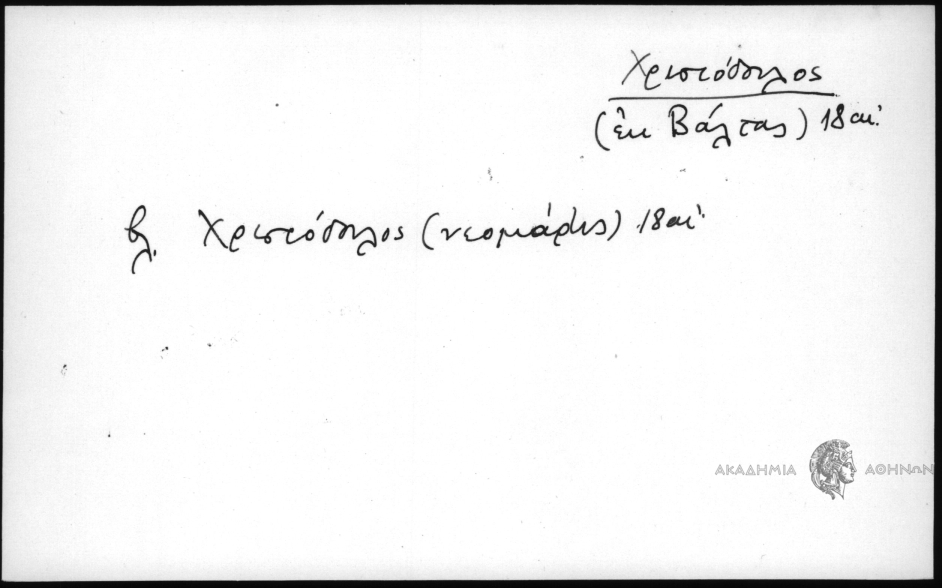 Χριστόδουλος
(ἐκ Βάλτας) 18 αἰ.
βλ. Χριστόδουλος (νεομάρτυς) 18 αἰ.
ΑΚΑΔΗΜΙΑ ΑΘΗΝΩΝ